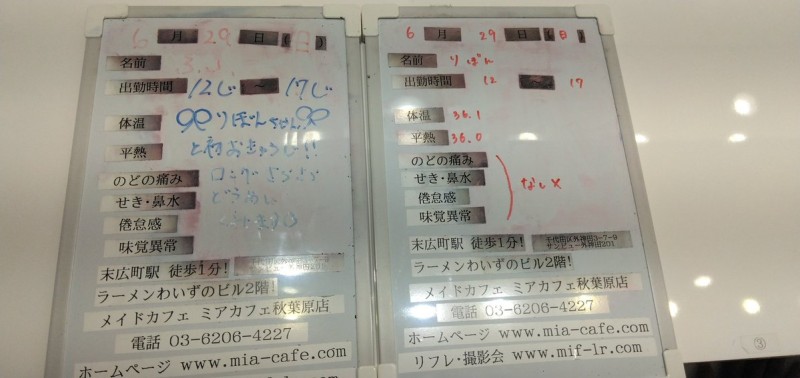 6 月 29 日 (日)
名前
出勤時間 12じ ～ 17じ
体温 りぼんちゃん
平熱 と初おきゅうじ!!
のどの痛み
せき・鼻水
倦怠感
味覚異常
末広町駅 徒歩1分!
ラーメンわいずのビル2階!
メイドカフェ ミアカフェ秋葉原店
電話 03-6206-4227
ホームページ www.mia-cafe.com
6 月 29 日 (日)
名前 りぼん
出勤時間 12 ～ 17
体温 36.1
平熱 36.0
のどの痛み
せき・鼻水
倦怠感
味覚異常
なし×
末広町駅 徒歩1分! 千代田区外神田3-7-9
サンビュー外神田201
ラーメンわいずのビル2階!
メイドカフェ ミアカフェ秋葉原店
電話 03-6206-4227
ホームページ www.mia-cafe.com
リフレ・撮影会 www.mif-lr.com
③